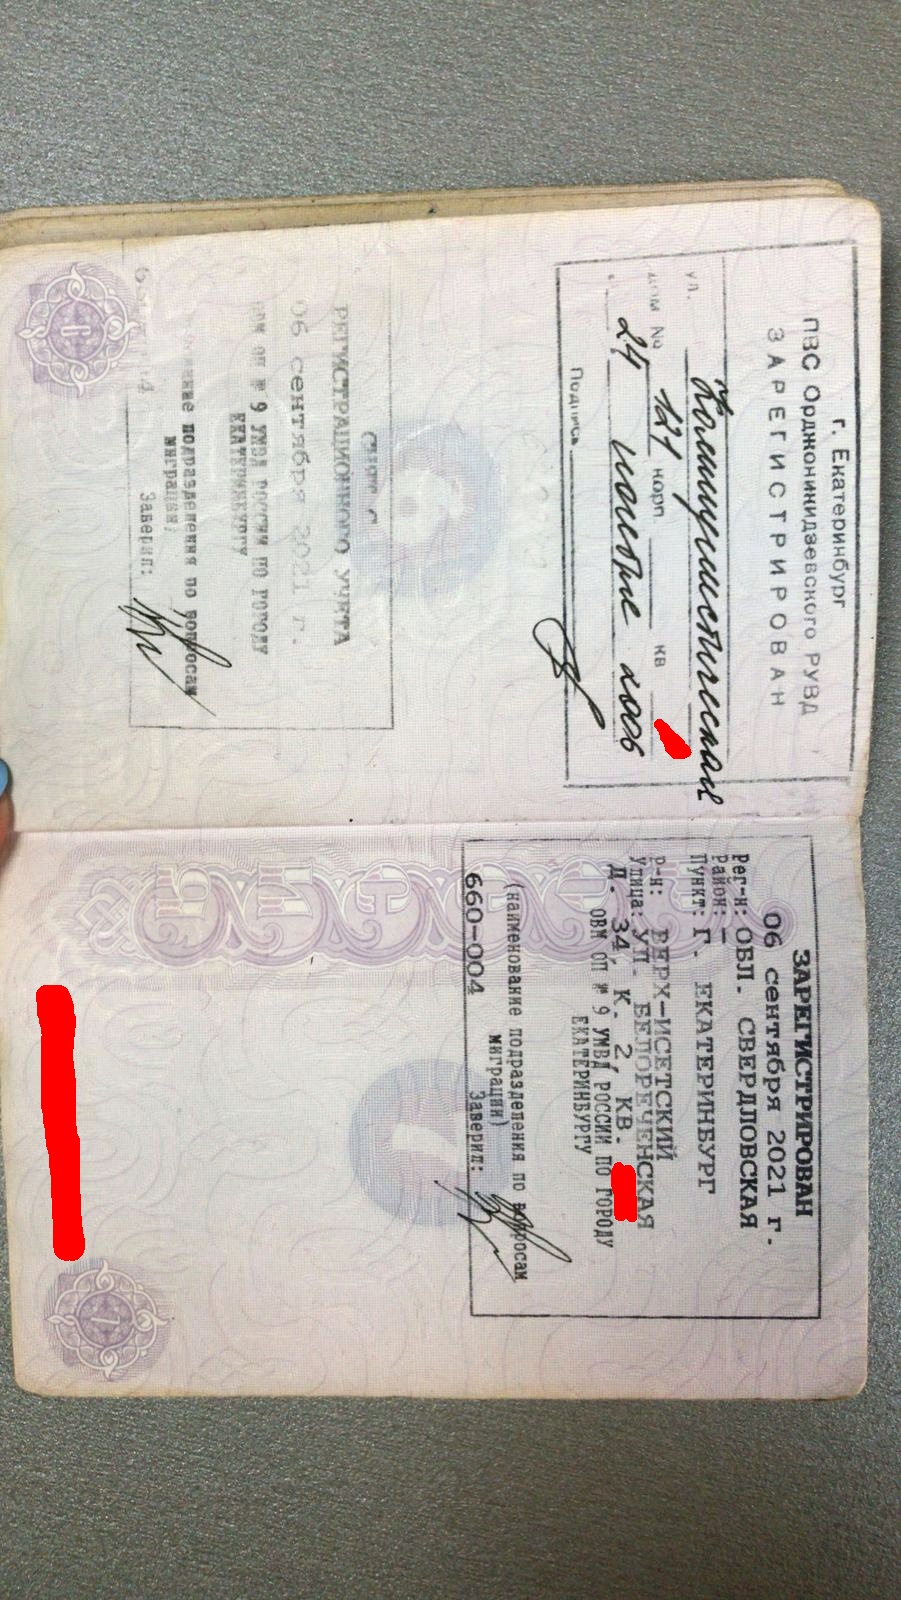 г. Екатеринбург
ПВС Орджоникидзевского РУВД
ЗАРЕГИСТРИРОВАН
ул. Коммунистическая
дом № 121 корп. кв
24 ноября 2006
Подпись
СНЯТ С
РЕГИСТРАЦИОННОГО УЧЕТА
06 сентября 2021 г.
ОВМ ОП № 9 УМВД РОССИИ ПО ГОРОДУ
ЕКАТЕРИНБУРГУ
подразделения по вопросам
миграции)
Заверил:
6
ЗАРЕГИСТРИРОВАН
06 сентября 2021 г.
Рег-н: ОБЛ. СВЕРДЛОВСКАЯ
Район: —
Пункт: Г. ЕКАТЕРИНБУРГ
Р-н: ВЕРХ-ИСЕТСКИЙ
Улица: УЛ. БЕЛОРЕЧЕНСКАЯ
Д. 34, К. 2, КВ.
ОВМ ОП № 9 УМВД РОССИИ ПО ГОРОДУ
ЕКАТЕРИНБУРГУ
(наименование подразделения по вопросам
миграции)
660-004 Заверил:
7